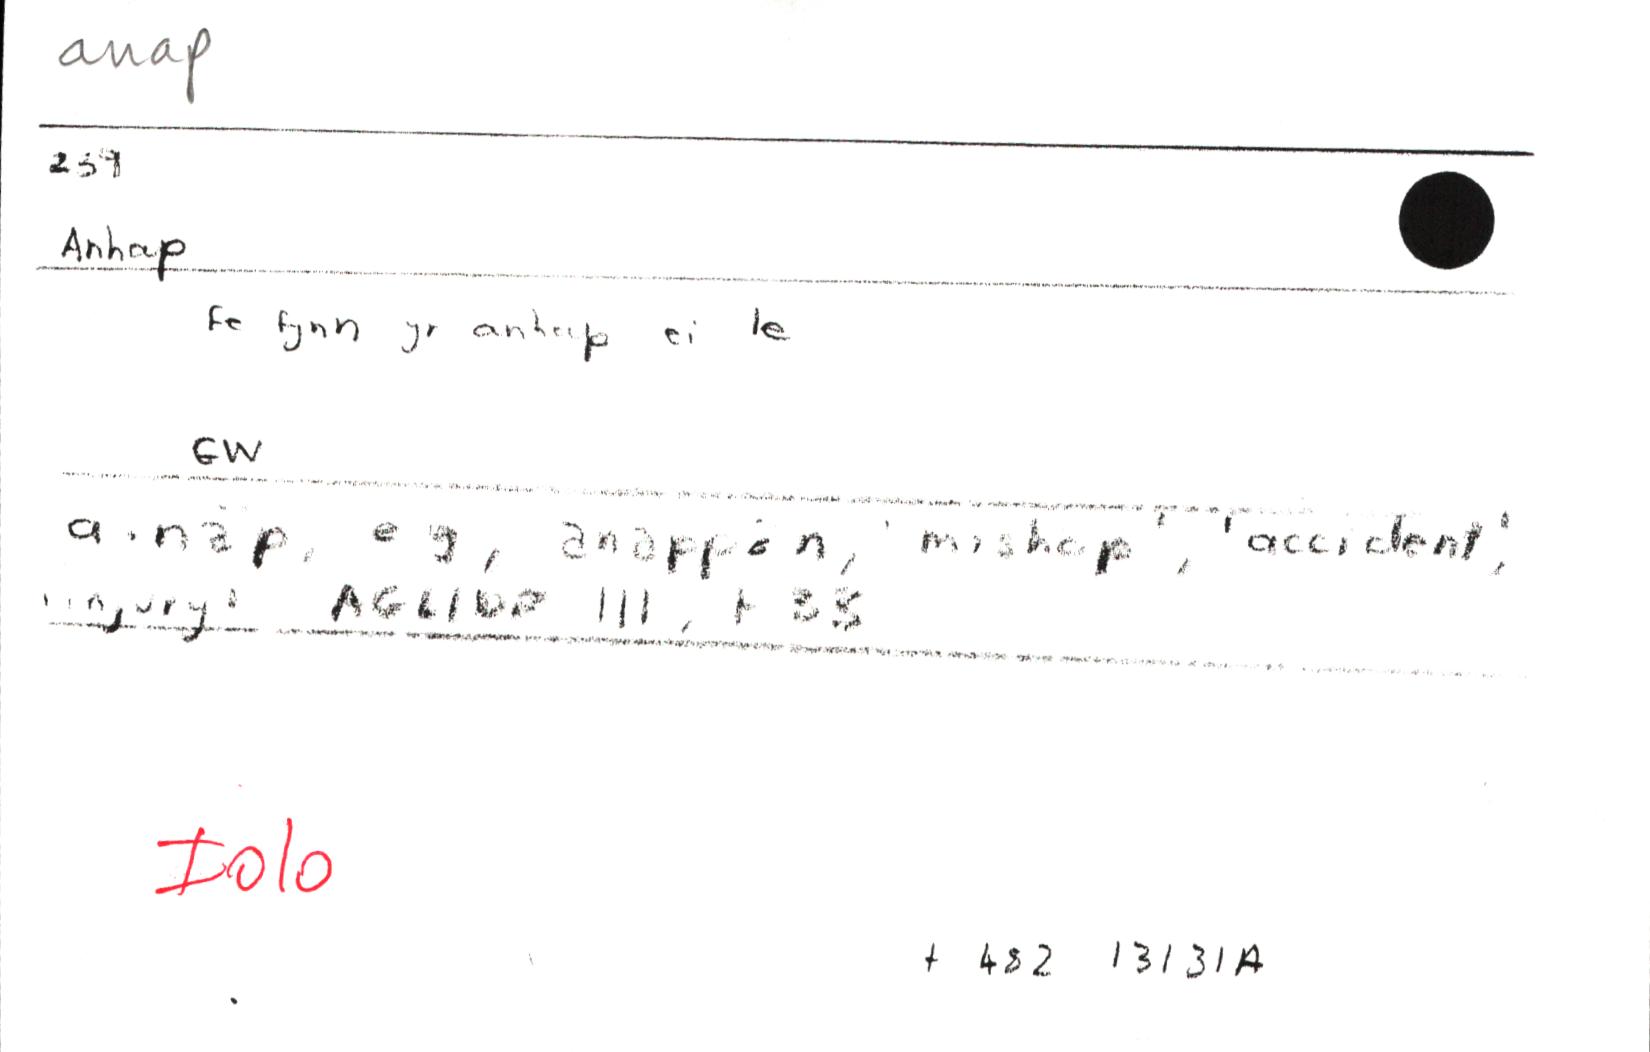 anap
259
Anhap
Fe fynn yr anhap ei le
GW
a.nap, eg, anappon, 'mishap', 'accident',
'injury' III, t 35
Iolo
t 482 13131A